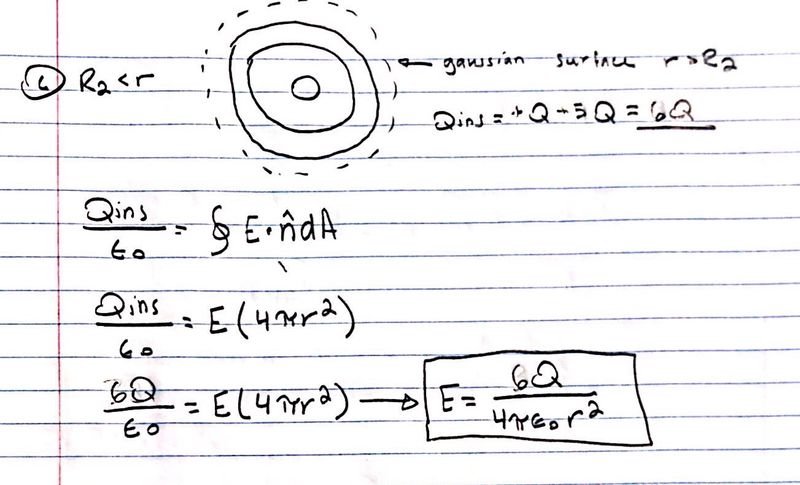 c) R₂ < r
← gaussian surface r > R₂
Qins = +Q + 5Q = 6Q
Qins/ϵ₀ = ∮ E · n̂ dA
Qins/ϵ₀ = E(4πr²)
6Q/ϵ₀ = E(4πr²) → E = 6Q/4πϵ₀r²